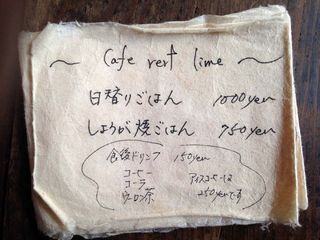 ～ Cafe vert lime ～
日替りごはん 1000yen
しょうが焼ごはん 750yen
食後ドリンク 150yen
コーヒー
コーラ
ウーロン茶
アイスコーヒーは
250yenです